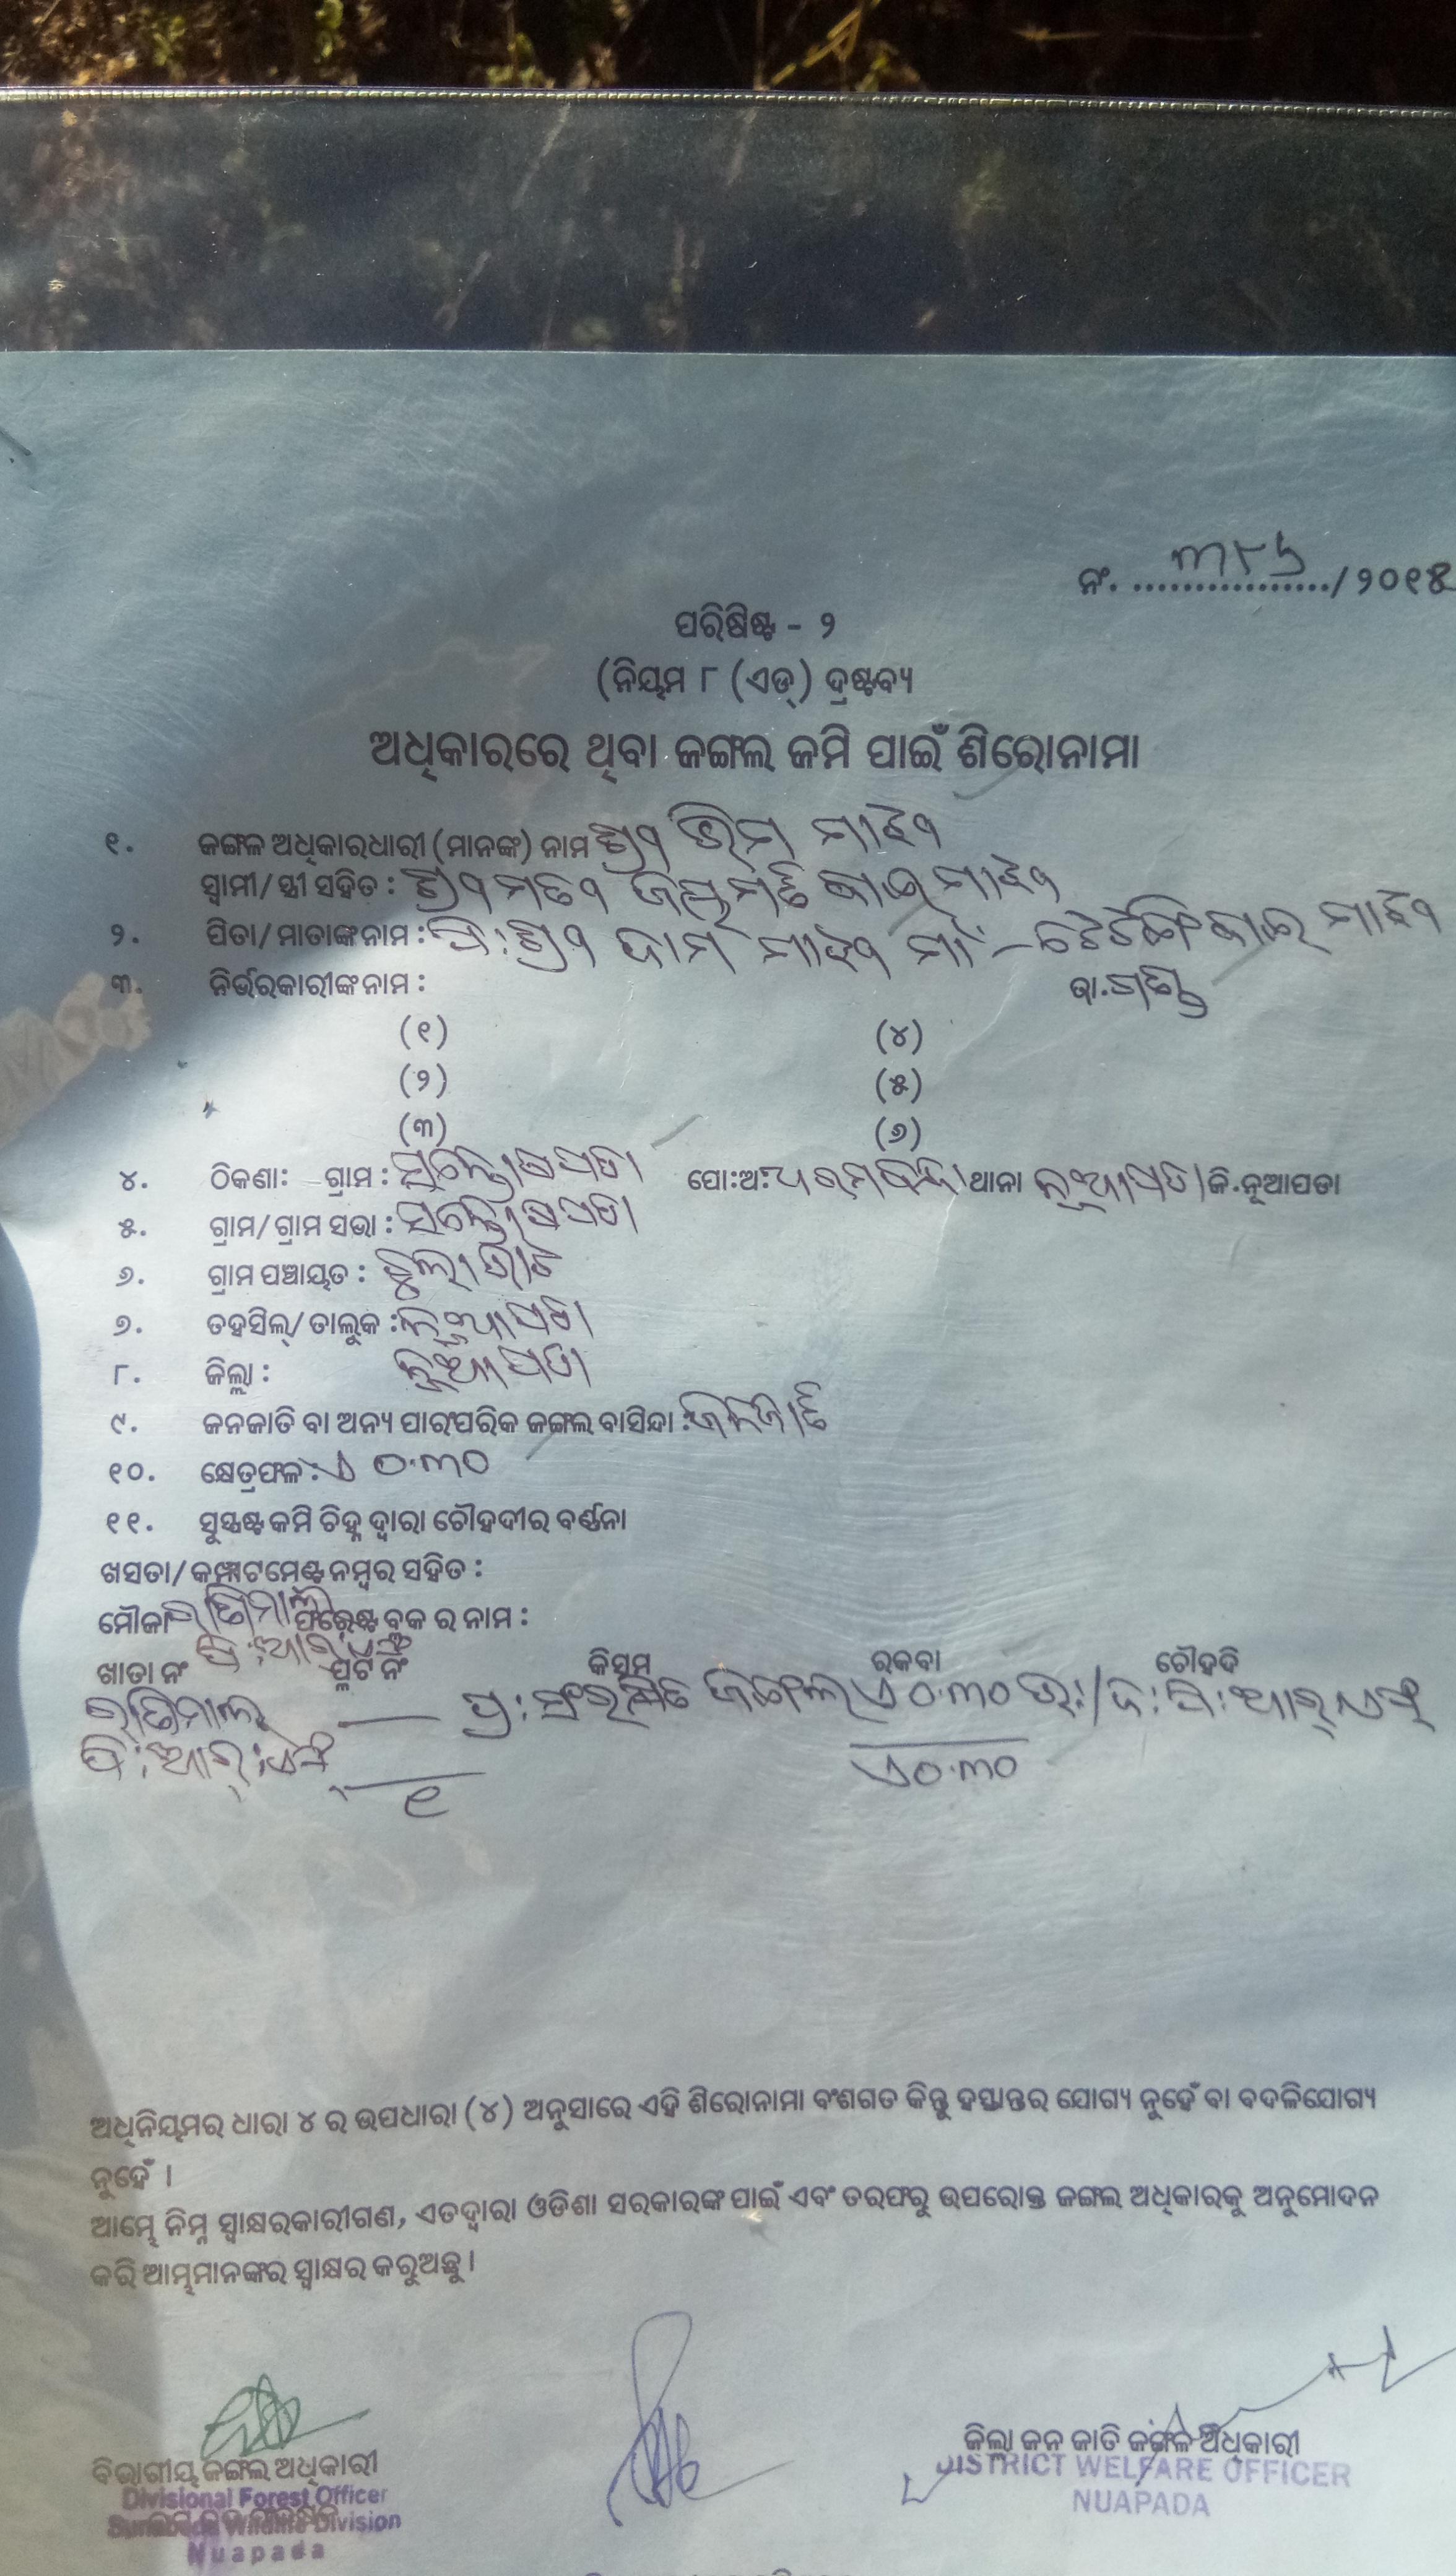 ନଂ. ................./ ୨୦୧୫
୩୮୬
ପରିଷିଷ୍ଟ - ୨
(ନିୟମ ୮ (ଏଚ୍) ଦ୍ରଷ୍ଟବ୍ୟ
ଅଧିକାରରେ ଥିବା ଜଙ୍ଗଲ ଜମି ପାଇଁ ଶିରୋନାମା
୧. ଜଙ୍ଗଳ ଅଧିକାରଧାରୀ (ମାନଙ୍କ) ନାମ ଶ୍ରୀ ଭିମ ମାଝୀ
ସ୍ୱାମୀ/ସ୍ତ୍ରୀ ସହିତ : ଶ୍ରୀମତୀ ମାଝୀ
୨. ପିତା/ମାତାଙ୍କ ନାମ : ପି: ଶ୍ରୀ ଦାମ ମାଝୀ ମା: - ମାଝୀ
୩. ନିର୍ଭରକାରୀଙ୍କ ନାମ : ଜା.ଗଣ୍ଡ
(୧) (୪)
(୨) (୫)
(୩) (୬)
୪. ଠିକଣା: ଗ୍ରାମ : ସନ୍ତୋଷପଡା ପୋ:ଅ: ଧରମବନ୍ଧା ଥାନା ନୂଆପଡା ଜି.ନୂଆପଡା
୫. ଗ୍ରାମ/ଗ୍ରାମ ସଭା : ସନ୍ତୋଷପଡା
୬. ଗ୍ରାମ ପଞ୍ଚାୟତ :
୭. ତହସିଲ୍/ତାଲୁକ : ନୂଆପଡା
୮. ଜିଲ୍ଲା : ନୂଆପଡା
୯. ଜନଜାତି ବା ଅନ୍ୟ ପାରଂପରିକ ଜଙ୍ଗଲ ବାସିନ୍ଦା : ଜନଜାତି
୧୦. କ୍ଷେତ୍ରଫଳ : ଏ ୦.୩୦
୧୧. ସୁସ୍ପଷ୍ଟ ଜମି ଚିହ୍ନ ଦ୍ୱାରା ଚୌହଦୀର ବର୍ଣ୍ଣନା
ଖସଡା/କମ୍ପାଟମେଣ୍ଟ ନମ୍ବର ସହିତ :
ମୌଜା ଫରେଷ୍ଟ ବ୍ଲକ ର ନାମ :
ପି:ଆର୍:ଏଫ୍
ଖାତା ନଂ ପ୍ଲଟ ନଂ କିସମ ରକବା ଚୌହଦି
ଜଙ୍ଗଲ ଏ ୦.୩୦ ଉ:/ଦ: ପି:ଆର୍:ଏଫ୍
ପି:ଆର୍:ଏଫ୍ ଏ୦.୩୦
୧
ଅଧିନିୟମର ଧାରା ୪ ର ଉପଧାରା (୪) ଅନୁସାରେ ଏହି ଶିରୋନାମା ବଂଶଗତ କିନ୍ତୁ ହସ୍ତାନ୍ତର ଯୋଗ୍ୟ ନୁହେଁ ବା ବଦଳିଯୋଗ୍ୟ
ନୁହେଁ ।
ଆମ୍ଭେ ନିମ୍ନ ସ୍ୱାକ୍ଷରକାରୀଗଣ, ଏତଦ୍ୱାରା ଓଡିଶା ସରକାରଙ୍କ ପାଇଁ ଏବଂ ତରଫରୁ ଉପରୋକ୍ତ ଜଙ୍ଗଲ ଅଧିକାରକୁ ଅନୁମୋଦନ
କରି ଆମ୍ଭମାନଙ୍କର ସ୍ୱାକ୍ଷର କରୁଅଛୁ ।
ଜିଲ୍ଲା ଜନ ଜାତି ଜଙ୍ଗଳ ଅଧିକାରୀ
DISTRICT WELFARE OFFICER
NUAPADA
ବିଭାଗୀୟ ଜଙ୍ଗଲ ଅଧିକାରୀ
Divisional Forest Officer
Sunabeda Wildlife Division
Nuapada